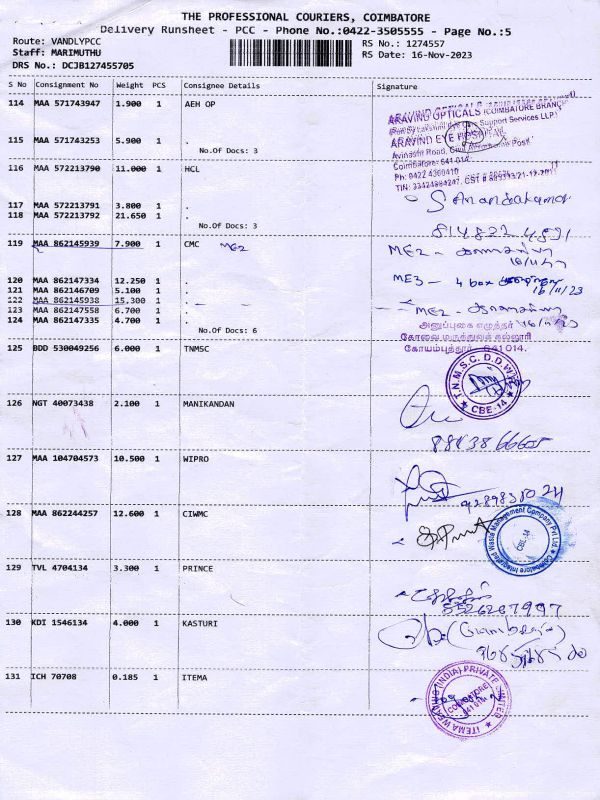 THE PROFESSIONAL COURIERS, COIMBATORE
Delivery Runsheet - PCC - Phone No.:0422-3505555 - Page No.:5
Route: VANDLYPCC
RS No.: 1274557
Staff: MARIMUTHU
RS Date: 16-Nov-2023
DRS No.: DCJB127455705
S No Consignment No Weight PCS Consignee Details Signature
114 MAA 571743947 1.900 1 AEH OP
ARAVIND OPTICALS (COIMBATORE BRANCH)
Support Services LLP)
115 MAA 571743253 5.900 1 .
ARAVIND EYE HOSPITAL
No.Of Docs: 3
Avinashi Road, Civil Aerodrome Post
Coimbatore- 641 014.
116 MAA 572213790 11.000 1 HCL
Ph: 0422 4360410
117 MAA 572213791 3.800 1 .
118 MAA 572213792 21.650 1 .
No.Of Docs: 3
119 MAA 862145939 7.900 1 CMC ME2
ME2 -
120 MAA 862147334 12.250 1 .
121 MAA 862146709 5.100 1 .
ME3 - 4 box
16/11/23
122 MAA 862145938 15.300 1 .
123 MAA 862147558 6.700 1 .
ME2 -
124 MAA 862147335 4.700 1 .
No.Of Docs: 6
அனுப்புகை எழுத்தர்
கோவை மருத்துவக் கல்லூரி
கோயம்புத்தூர் - 641 014.
125 BDD 530049256 6.000 1 TNMSC
T.N.M.S.C. D.D.W.
CBE-14
126 NGT 40073438 2.100 1 MANIKANDAN
127 MAA 104704573 10.500 1 WIPRO
128 MAA 862244257 12.600 1 CIWMC
Coimbatore Integrated Waste Management Company Pvt Ltd
CBE-14
129 TVL 4704134 3.300 1 PRINCE
130 KDI 1546134 4.000 1 KASTURI
131 ICH 70708 0.185 1 ITEMA
ITEMA WEAVING (INDIA) PRIVATE LIMITED
COIMBATORE
641 014